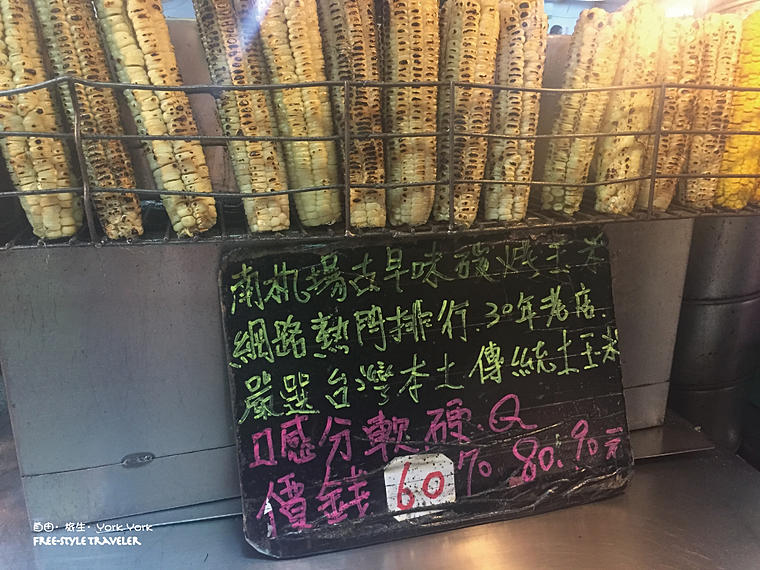 南机場古早味碳烤玉米
網路熱門排行.30年老店.
嚴選台灣本土傳統土玉米
口感分軟.硬.Q
價錢60 70 80.90元
自由·旅生·York York
FREE-STYLE TRAVELER